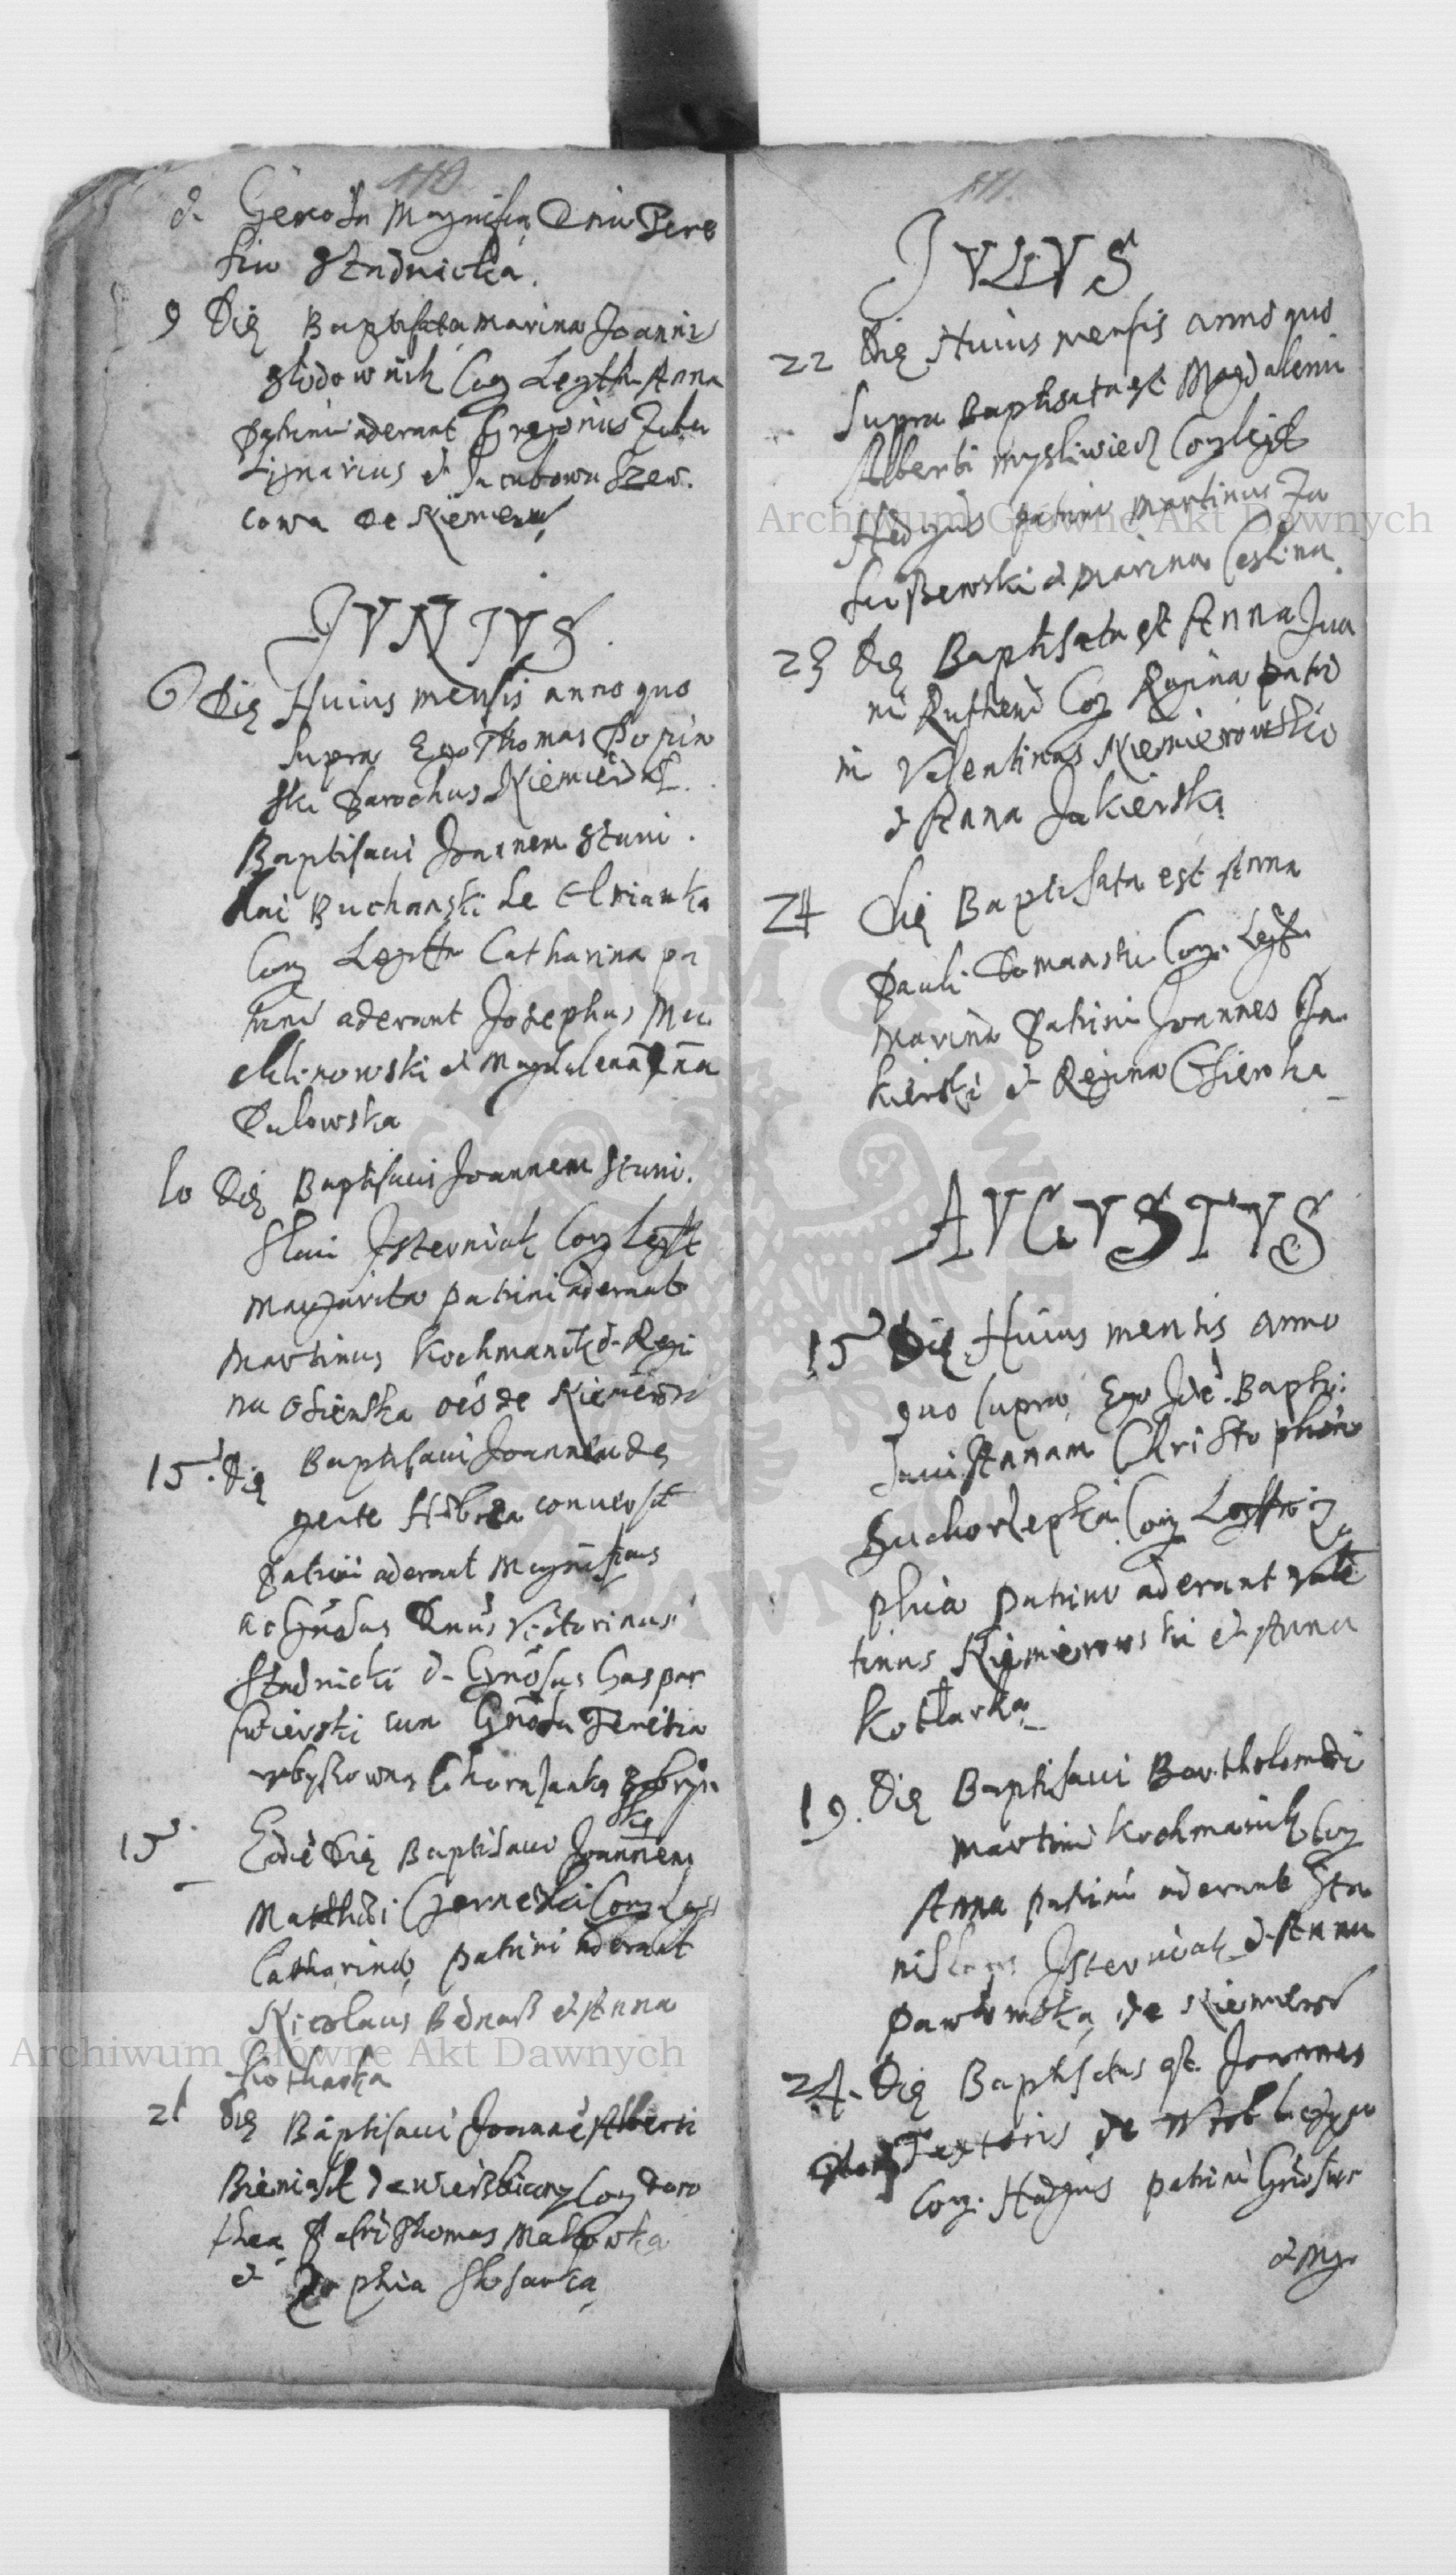 110
& Generosa Magnifica Dna Tere
sia Stadnicka.
9 Die Baptisata Marina Joannis
Głodownik Coög Legtta Anna
Patrini aderant Gregorius Faber
Lignarius et Jacubowa Szew.
cowa de Niemerow
JVNIVS.
6 Die Huius mensis anno quo
supra Ego Thomas Popin
ski Parochus Niemierow
Baptisavi Joannem Stani.
slai Buchanski de Olsianka
Cong Legtta Catharina pa
trini aderant Josephus Mu
chlinowski et Magdalena Dna
Dulowska
10 Die Baptisavi Joannem Stani.
slai Jsterniak Cong Legtt
Margarita patrini aderant
Martinus Kochmanik & Regi
na Osienska oēs de Niemiero
15. Die Baptisavi Joannem de
gente Hebrea conversū
patrini aderant Magnificus
ac Gnosus Dnus Victorinus
Stadnicki & Gnosus Gaspar
Swierski cum Gnosa Teresia
Chorazanka Bobryn
ska
15. Eodē Die Baptisavi Joannem
Matthiæi Czernecki Cong Leg
Catharina patrini aderant
Nicolaus Bednarz et Anna
Kotlarka
21 Die Baptisavi Joannē Alberti
Bieniasz de Wierzbiany Cong Doro
thea Patri Thomas Malowka
et Zophia Slosarka
111.
JVLIVS
22 Die Huius mensis anno quo
supra Baptisata est Magdalena
Alberti mysliwiec Cong legtt
Hedvigis patrini Martinus Za
luszewski et Marina Ceslina.
23 Die Baptisata est Anna Jua
ni Rutheni Cong Regina patri
ni Valentinus Niemierowski
& Anna Jakierska
24 Die Baptisata est Anna
Pauli Domanski Cong. Legtt
Marina Patrini Joannes Ja
kierski & Regina Osienska
AVGVSTVS
15 Die Huius mensis anno
quo supra Ego Idē Bapti.
savi Annam Christophori
Suchorzepka Cong Legttā Zo
phia patrini aderant Valē
tinus Niemierowski et Anna
Kotlarka
19. Die Baptisavi Bartholomæū
Martini Kochmanik Cong
Anna patrini aderant Sta
nislaus Jsterniak & Anna
Pawłowska de Niemierow
24. Die Baptisatus est Joannes
Textoris de Wroblaczyn
Cong. Hedvigis patrini Gnosus
& Mg.
Archiwum Główne Akt Dawnych
Archiwum Główne Akt Dawnych